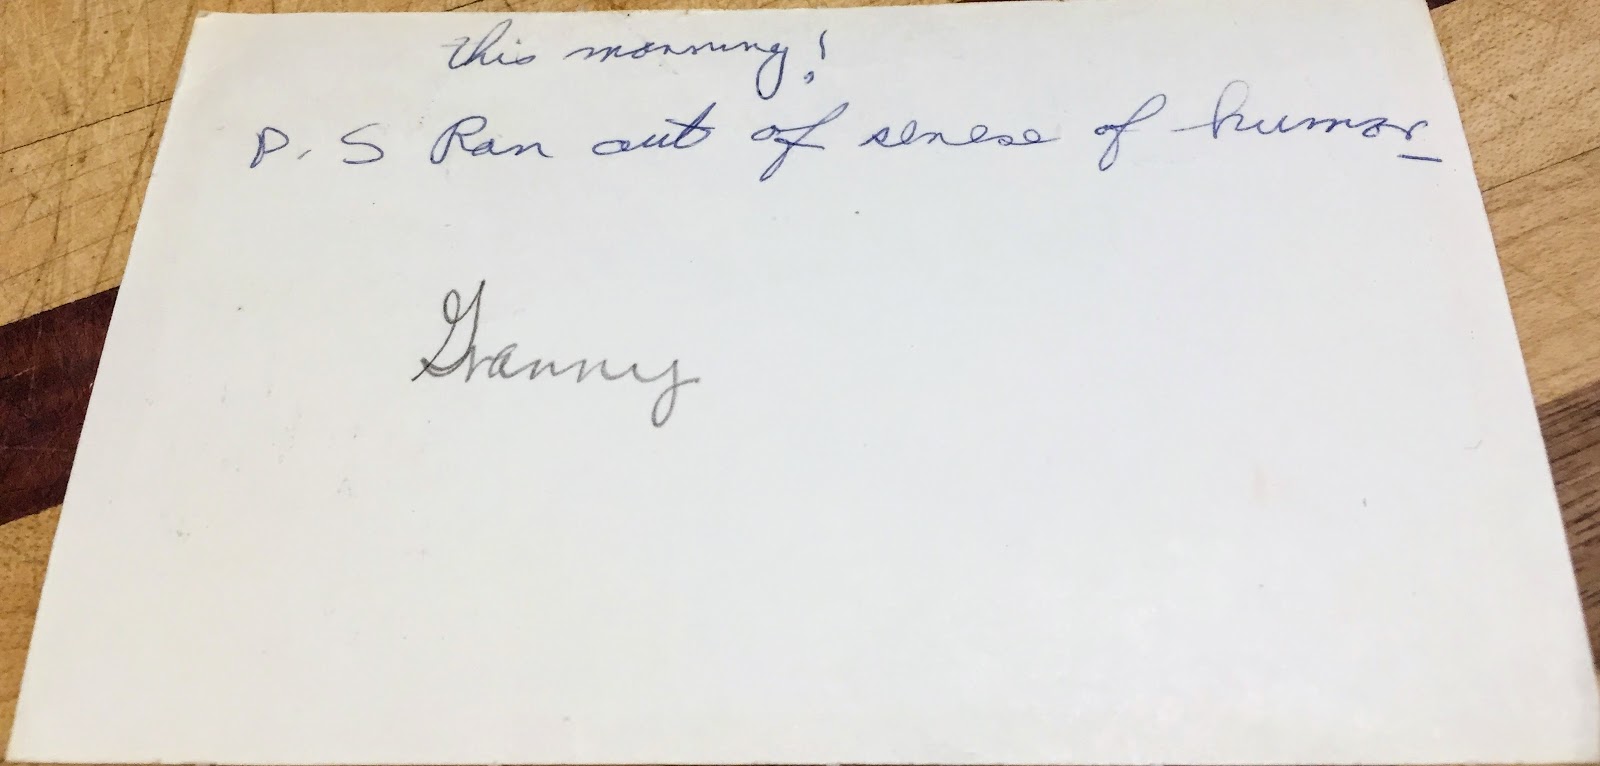 this morning!
P. S Ran out of sense of humor
Granny